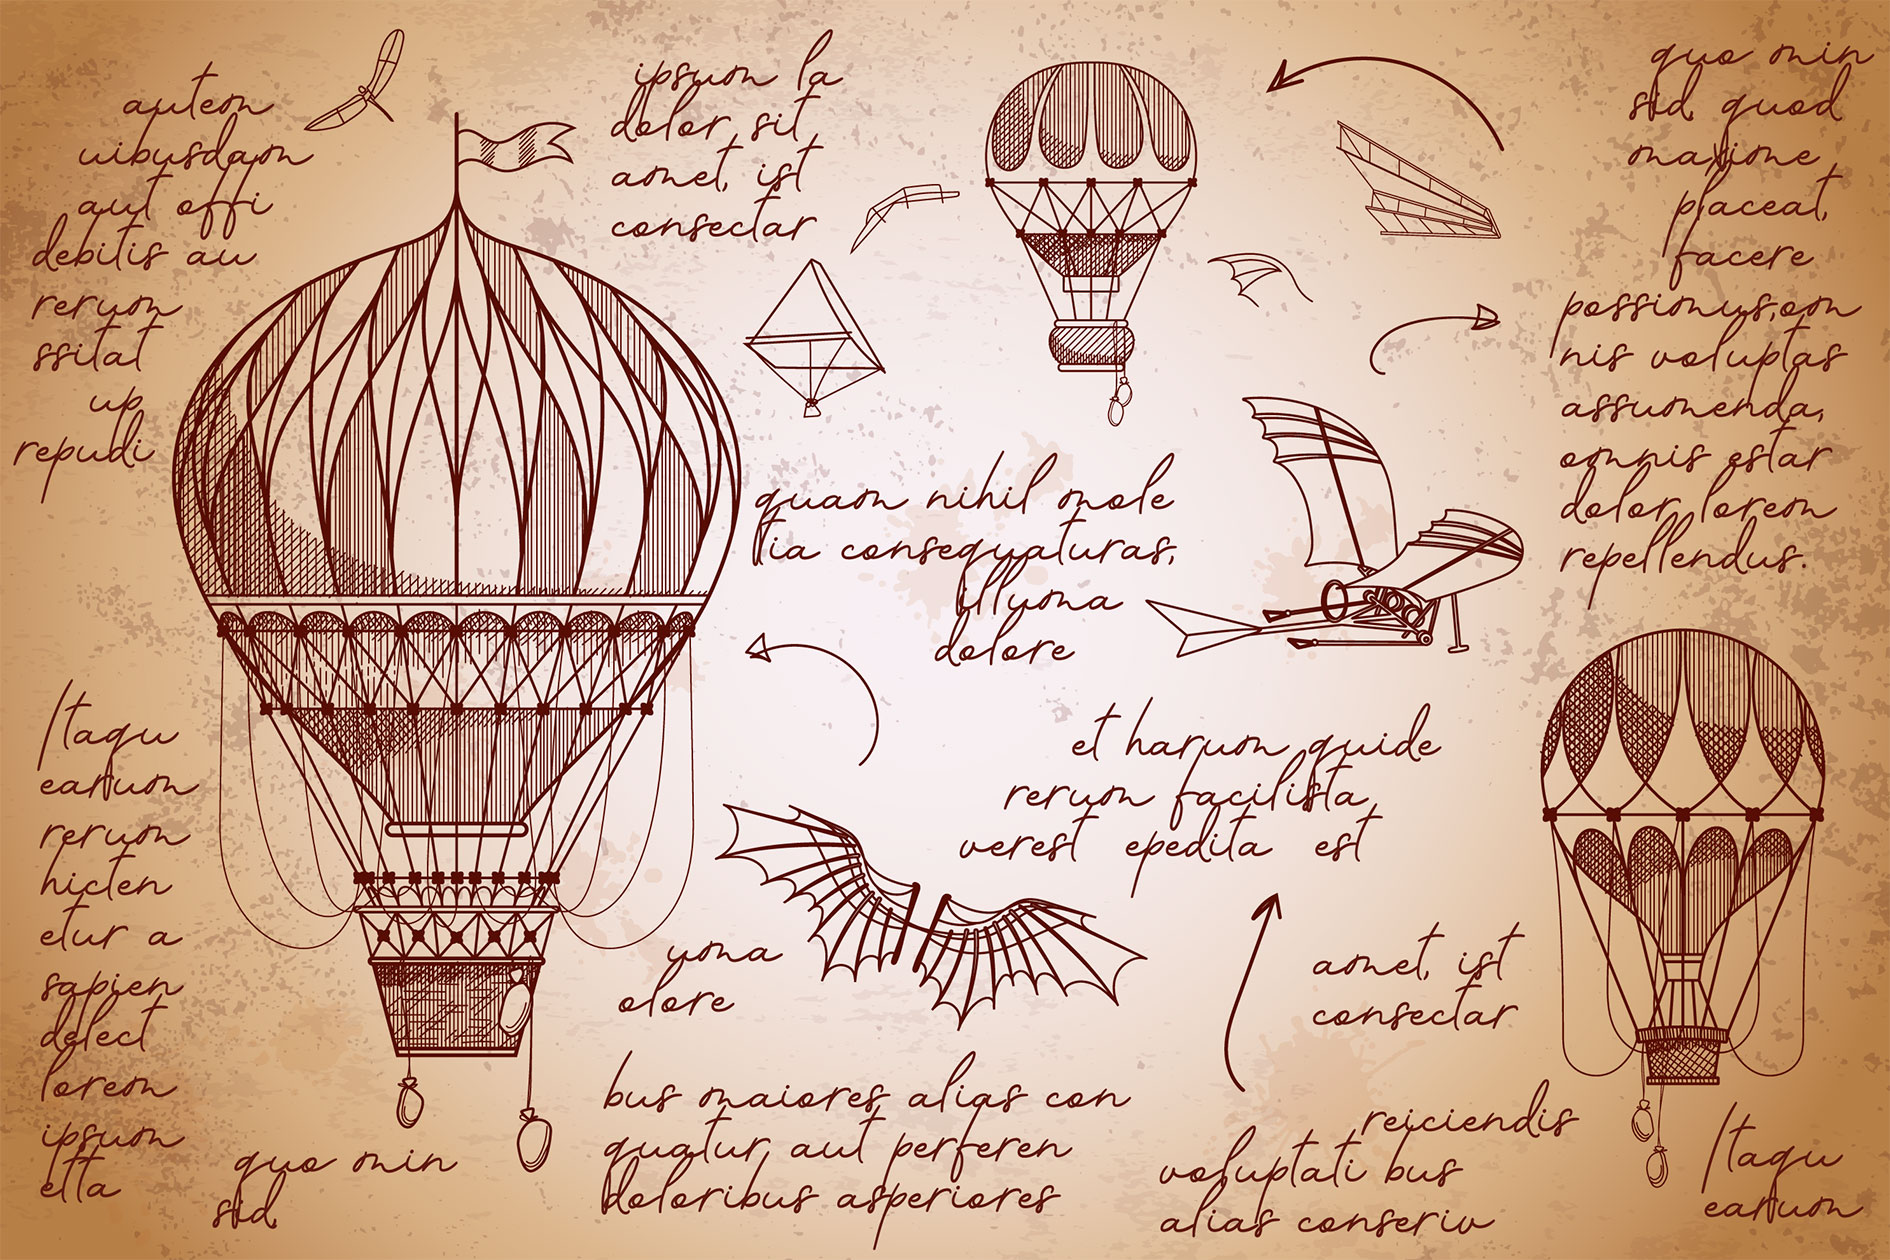 autem
uibusdam
aut offi
debitis au
rerum
ssitat
up
repudi
ipsum la
dolor, sit
amet, ist
consectar
quo min
sid, quod
maxime
placeat,
facere
possimus,om
nis voluptas
assumenda,
omnis estar
dolor, lorem
repellendus.
quam nihil mole
tia consequaturas,
illuma
dolore
Itaqu
earuum
rerum
hicten
etur a
sapien
delect
lorem
ipsum
etta
quo min
sid,
et harum quide
rerum facilista,
verest epedita est
uma
olore
amet, ist
consectar
bus maiores alias con
quatur, aut perferen
doloribus asperiores
reiciendis
voluptati bus
alias conseriv
Itaqu
earuum